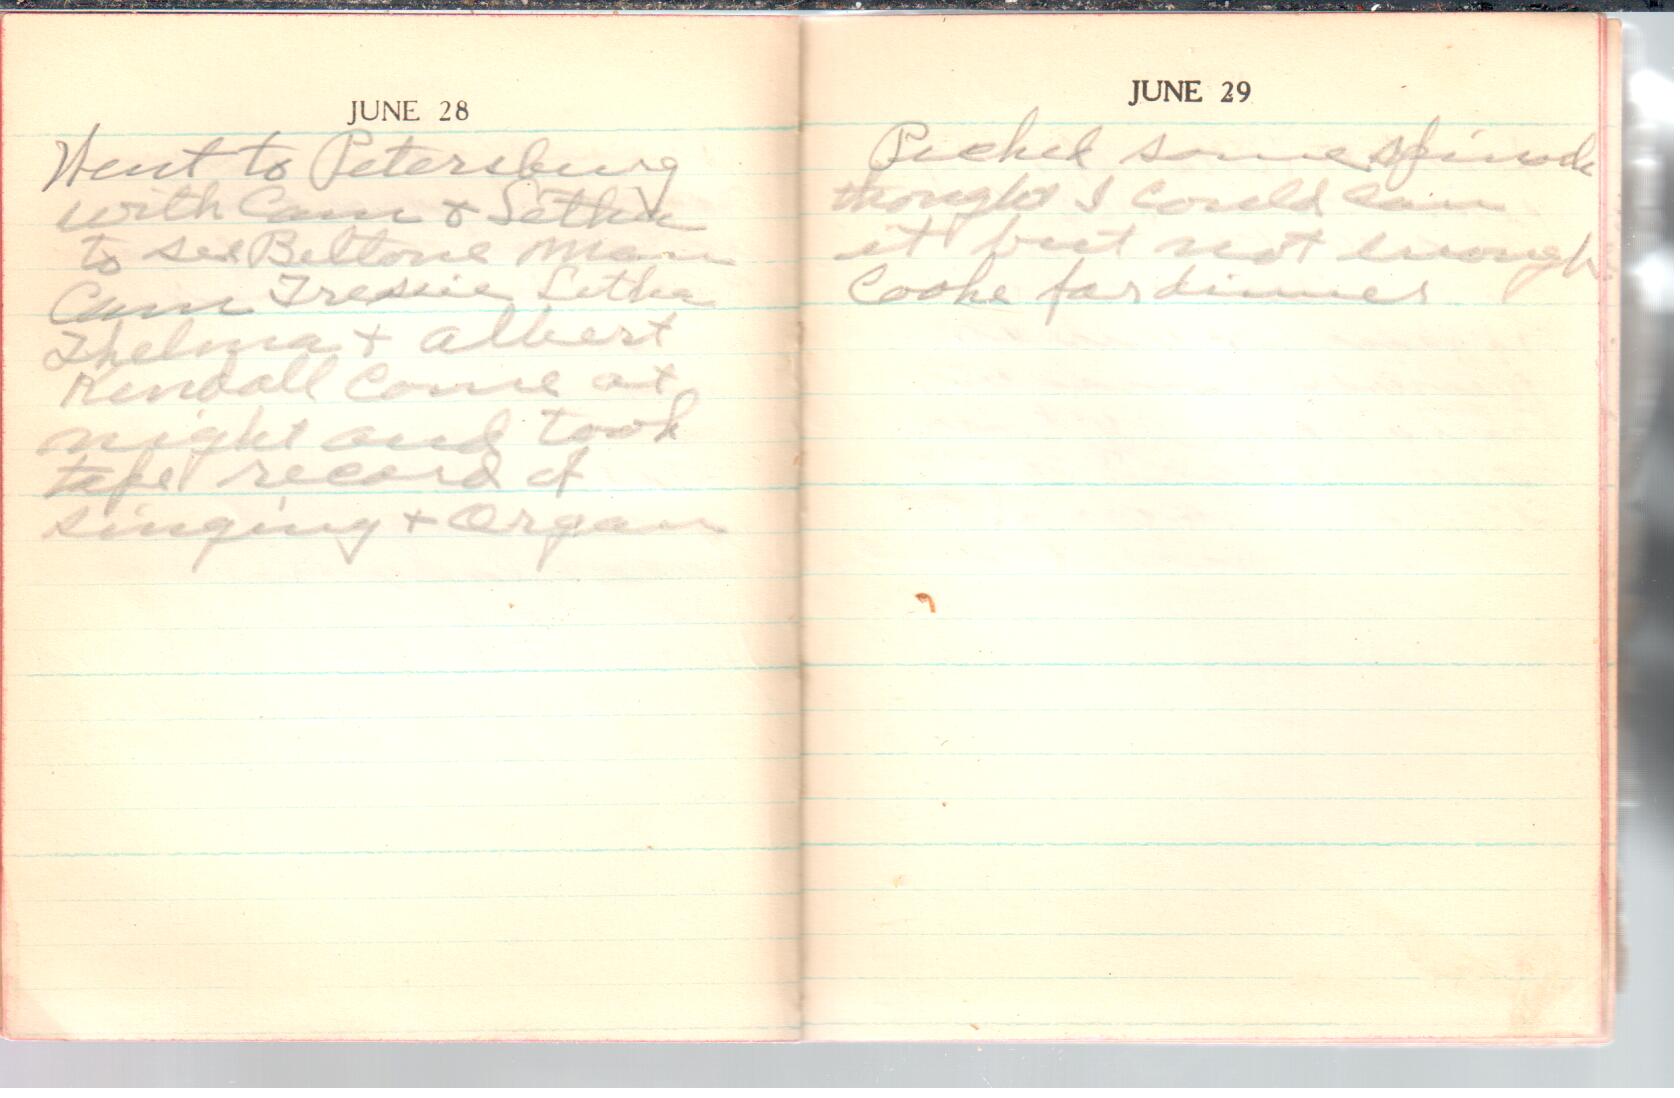 JUNE 28
Went to Petersburg
with Cam & Letha
to see Beltone man
Cam Tressie Letha
Thelma + Albert
Kendall Come at
night and took
tape record of
singing + Organ
JUNE 29
Picked some spinach
thought I Could can
it but not enough
Cooke for dinner